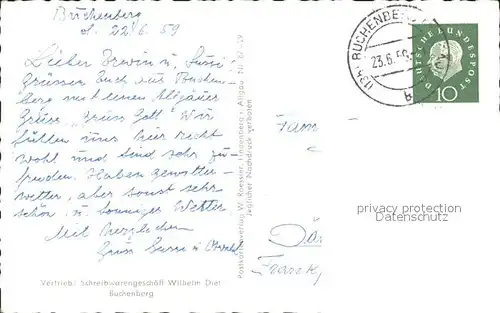 Buchenberg
d. 22.6.59
Lieber Erwin u. Sussi!
Grüssen Euch aus Buchen-
berg mit einem Allgäuer
Gruss, "Grüss Gott" Wir
fühlen uns hier recht
wohl und sind sehr zu-
frieden. Haben gewitter-
wetter, aber sonst sehr
schön u. sonniges Wetter.
Mit herzlichen
Grüss
Vertrieb: Schreibwarengeschäft Wilhelm Diet
Buchenberg
Postkartenverlag W. Roessler, Lindenberg i. Allgäu
Jeglicher Nachdruck verboten
BUCHENBERG
23.6.59
DEUTSCHE BUNDESPOST
10
Fam
privacy protection
Datenschutz